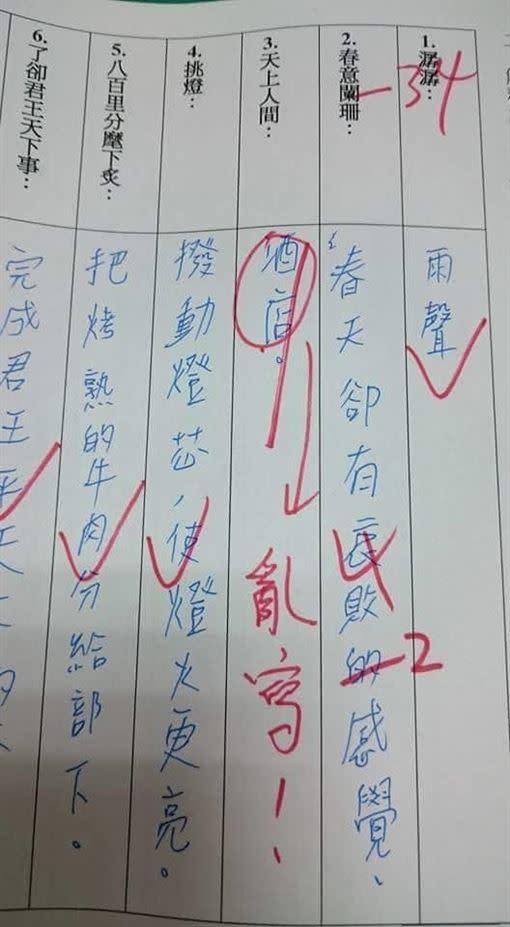 1. 潺潺：
-34
雨聲
2. 春意闌珊：
春天卻有衰敗的感覺、
-2
3. 天上人間：
酒店。
亂寫！
4. 挑燈：
撥動燈芯，使燈火更亮。
5. 八百里分麾下炙：
把烤熟的牛肉分給部下。
6. 了卻君王天下事：
完成君王